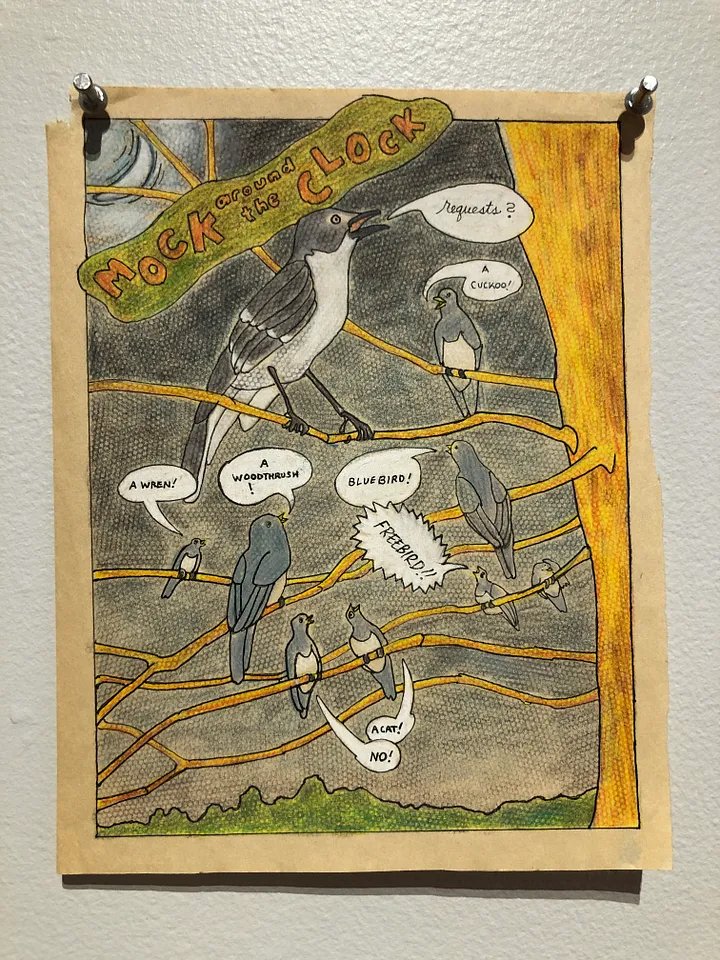 MOCK around
the CLOCK
requests?
A
CUCKOO!
A WREN!
A
WOODTHRUSH
!
BLUEBIRD!
FREEBIRD!!
A CAT!
NO!